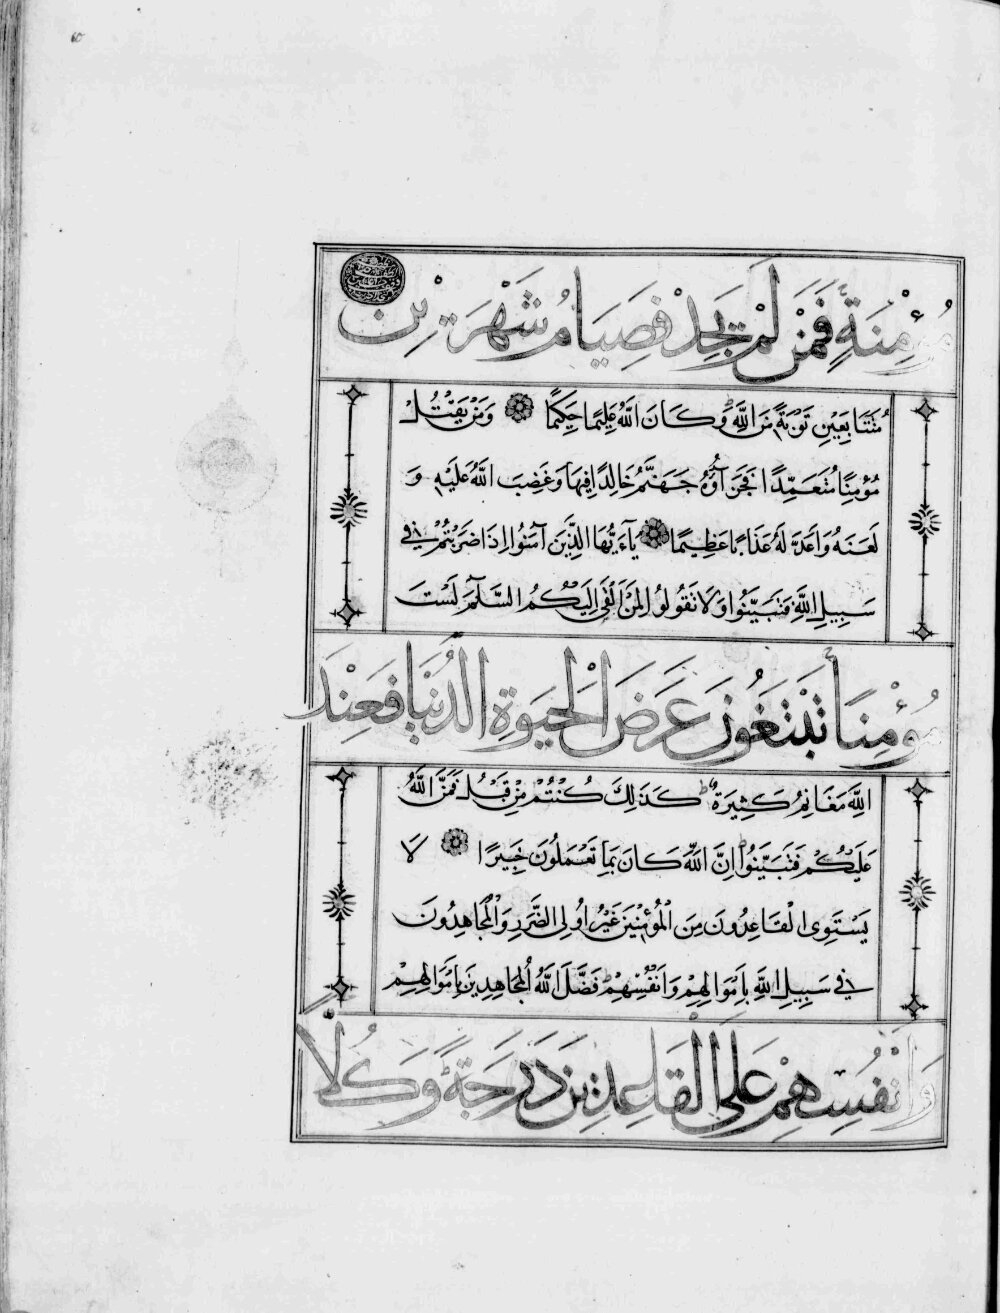 مُؤْمِنَةٍ فَمَنْ لَمْ يَجِدْ فَصِيَامُ شَهْرَيْنِ
مُتَتَابِعَيْنِ تَوْبَةً مِنَ اللَّهِ وَكَانَ اللَّهُ عَلِيمًا حَكِيمًا وَمَنْ يَقْتُلْ
مُؤْمِنًا مُتَعَمِّدًا فَجَزَآؤُهُ جَهَنَّمُ خَالِدًا فِيهَا وَغَضِبَ اللَّهُ عَلَيْهِ وَ
لَعَنَهُ وَاَعَدَّ لَهُ عَذَابًا عَظِيمًا يَآءَيُّهَا الَّذِينَ آمَنُوا اِذَا ضَرَبْتُمْ فِي
سَبِيلِ اللَّهِ فَتَبَيَّنُوا وَلَا تَقُولُوا لِمَنْ اَلْقَى اِلَيْكُمُ السَّلَمَ لَسْتَ
مُؤْمِنًا تَبْتَغُونَ عَرَضَ الْحَيٰوةِ الدُّنْيَا فَعِنْدَ
اللَّهِ مَغَانِمُ كَثِيرَةٌ كَذَلِكَ كُنْتُمْ مِنْ قَبْلُ فَمَنَّ اللَّهُ
عَلَيْكُمْ فَتَبَيَّنُوا اِنَّ اللَّهَ كَانَ بِمَا تَعْمَلُونَ خَبِيرًا لَا
يَسْتَوِى الْقَاعِدُونَ مِنَ الْمُؤْمِنِينَ غَيْرُ اُولِى الضَّرَرِ وَالْمُجَاهِدُونَ
فِي سَبِيلِ اللَّهِ بِاَمْوَالِهِمْ وَاَنْفُسِهِمْ فَضَّلَ اللَّهُ الْمُجَاهِدِينَ بِاَمْوَالِهِمْ
وَاَنْفُسِهِمْ عَلَى الْقَاعِدِينَ دَرَجَةً وَكُلًّا